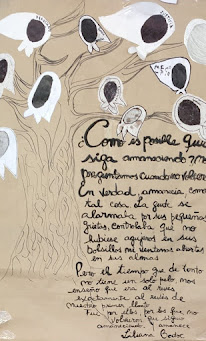 ¿Como es posible que
siga amaneciendo? Nos
preguntamos cuando no volvieron
En verdad, amanecia como
tal cosa. La gente se
alarmaba por sus pequeñas
grietas, controlaba que no
hubiese agujeros en sus
bolsillos ni ventanas abiertas
en sus almas
Pero el tiempo que de tonto
no tiene un solo pelo, nos
enseño que era al reves
exactamente al reves de
nuestro primer llanto
Fue por ellos, por los que no
volvieron que siguio
amaneciendo, amanece
Liliana Bodoc